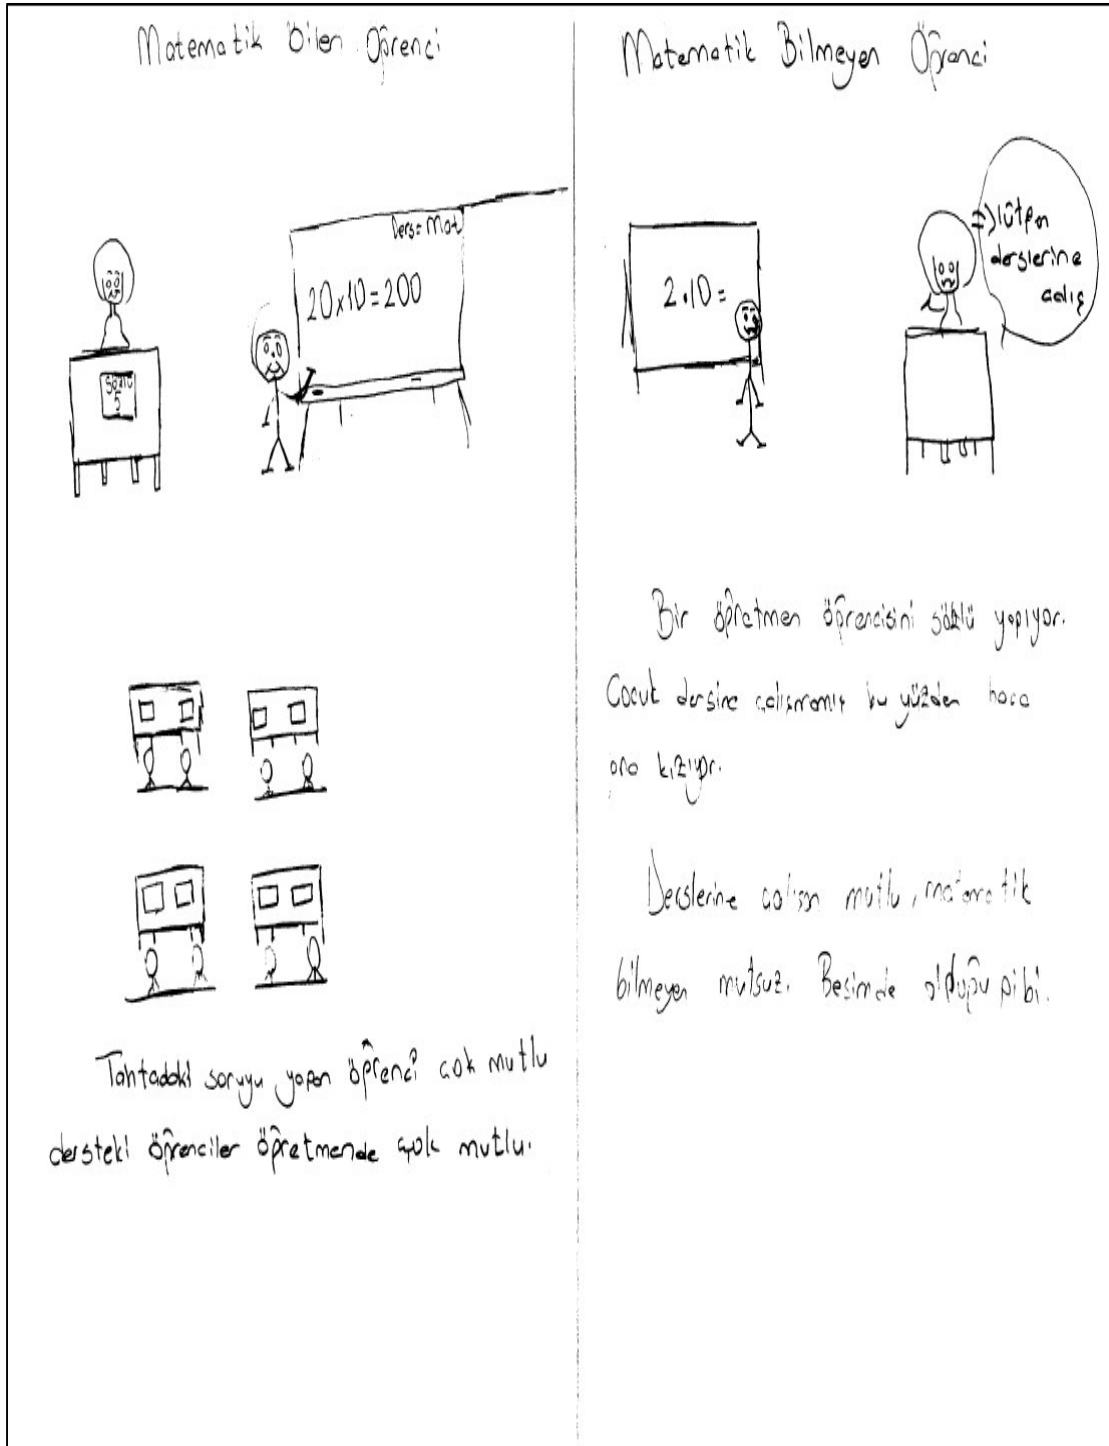 Matematik Bilen Öğrenci
Ders= Mat
20x10=200
Sözlü
5
Tahtadaki soruyu yapan öğrenci çok mutlu
dersteki öğrenciler öğretmende çok mutlu.
Matematik Bilmeyen Öğrenci
2.10=
=) lütfen
derslerine
çalış
Bir öğretmen öğrencisini sözlü yapıyor.
Çocuk dersine çalışmamış bu yüzden hoca
ona kızıyor.
Derslerine çalışan mutlu, matematik
bilmeyen mutsuz. Resimde olduğu gibi.